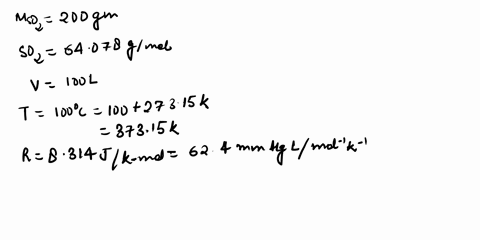 MSO₂ = 200 gm
SO₂ = 64.078 g/mol
V = 100L
T = 100°C = 100 + 273.15 k
= 373.15 k
R = 8.314 J/k-mol = 62.4 mm Hg L/mol⁻¹ k⁻¹